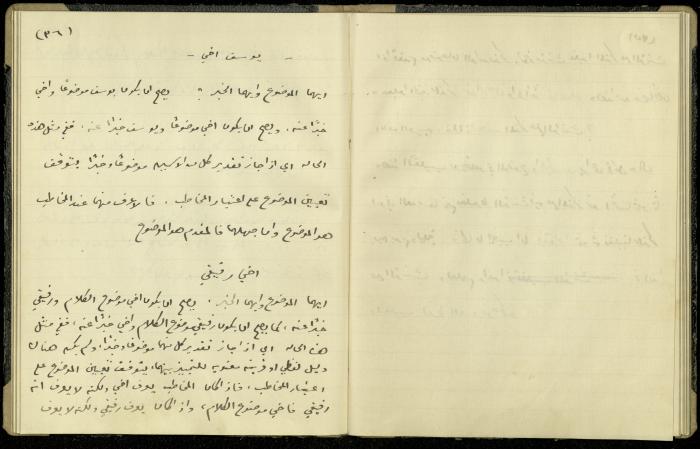 (٣٦)
- يوسف اخي -
ايهما الموضوع وايهما الخبر ؟ يصح ان يكون يوسف موضوعًا واخي
خبرًا عنه. ويصح ان يكون اخي موضوعًا ويوسف خبرًا عنه. ففي مثل هذه
الحاله اي اذا جاز تقدير كل من الاسمين موضوعًا وخبرًا يتوقف
تعيين الموضوع على اعتبار المخاطب . فالاعرف منهما عند المخاطب
هو الموضوع واما جهلهما فالمقدم هو الموضوع
اخي رفيقي
ايهما الموضوع وايهما الخبر . يصح ان يكون اخي موضوع الكلام ورفيقي
خبرًا عنه، كما يصح ان يكون رفيقي موضوع الكلام واخي خبرًا عنه، ففي مثل
هذه الحاله اي اذا جاز تقدير كل منهما موضوعًا وخبرًا ولم يكن هناك
دليل لفظي او قرينه معنويه للتمييز بينهما، يتوقف تعيين الموضوع على
اعتبار المخاطب، فاذا كان المخاطب يعرف اخي ولكنه لا يعرف انه
رفيقي فاخي موضوع الكلام، واذا كان يعرف رفيقي ولكنه لا يعرف